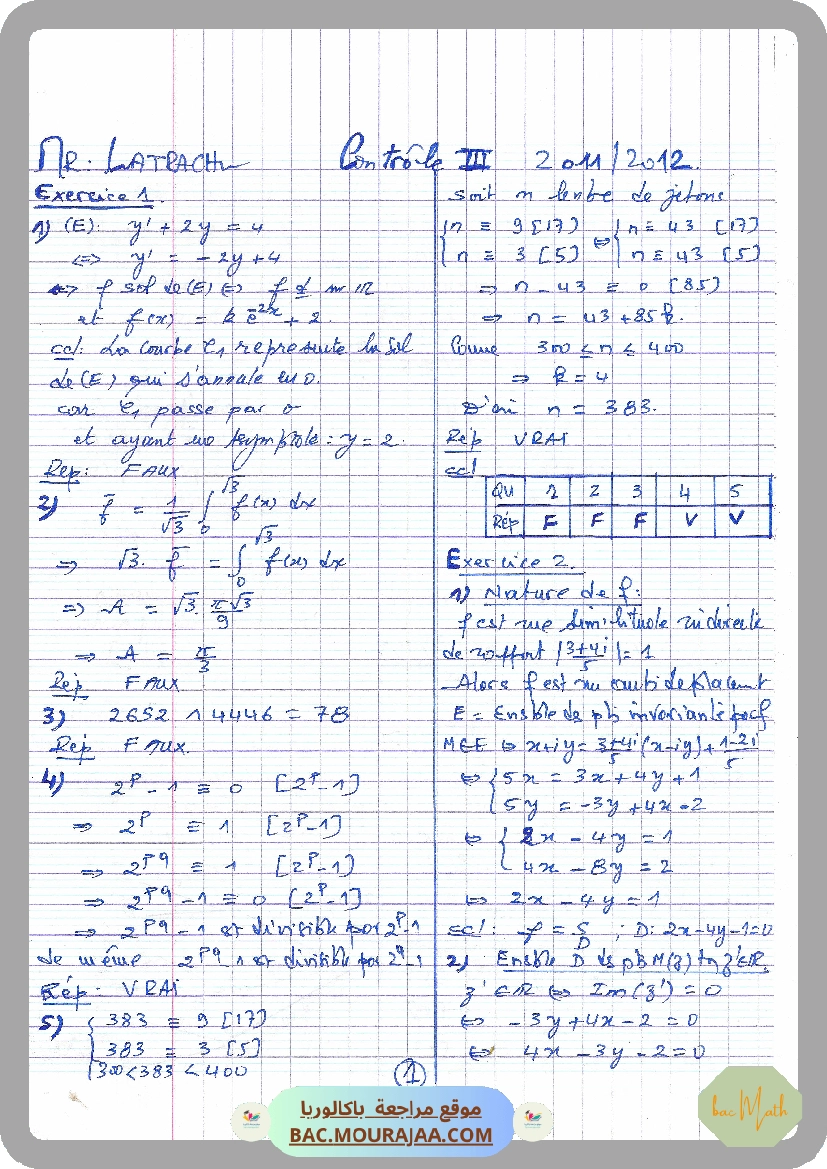 Mr: LATRACH Contrôle III 2011/2012.
Exercice 1.
1) (E): y' + 2y = 4
⟺ y' = -2y+4
⟺ f sol de (E) ⟺ f d sur IR
et f(x) = k e^{-2x} + 2.
ccl: La courbe C1 représente la sol
de (E) qui s'annule en 0.
car C1 passe par 0
et ayant une Asymptote: y = 2.
Rép: FAUX
2) f̄ = 1/√3 ∫_0^{√3} f(x) dx
⇒ √3. f̄ = ∫_0^{√3} f(x) dx
⇒ A = √3. π√3/9
⇒ A = π/3
Rép FAUX
3) 2652 ∧ 4446 = 78
Rép FAUX.
4) 2^p - 1 ≡ 0 [2^p - 1]
⇒ 2^p ≡ 1 [2^p - 1]
⇒ 2^{pq} ≡ 1 [2^p - 1]
⇒ 2^{pq} - 1 ≡ 0 [2^p - 1]
⇒ 2^{pq} - 1 est divisible par 2^p - 1
de même 2^{pq} - 1 est divisible par 2^q - 1
Rép: VRAI
5) { 383 ≡ 9 [17]
383 ≡ 3 [5]
300 < 383 < 400
soit n le nbre de jetons
{ n ≡ 9 [17] ⟺ { n ≡ 43 [17]
n ≡ 3 [5] n ≡ 43 [5]
⇒ n - 43 ≡ 0 [85]
⇒ n = 43 + 85k.
Comme 300 ≤ n ≤ 400
⇒ k = 4
D'où n = 383.
Rép VRAI
ccl
QU 1 2 3 4 5
Rép F F F V V
Exercice 2.
1) Nature de f:
f est une similitude indirecte
de rapport |3+4i/5| = 1
Alors f est un antidéplacement
E = Ensble des pts invariants par f
M∈E ⟺ x+iy = 3+4i/5 (x-iy) + 1-2i/5
⟺ { 5x = 3x + 4y + 1
5y = -3y + 4x - 2
⟺ { 2x - 4y = 1
4x - 8y = 2
⟺ 2x - 4y = 1
ccl: f = S_D ; D: 2x-4y-1=0
2) Ensble D des pts M(z) tq z'∈IR.
z' ∈ IR ⟺ Im(z') = 0
⟺ -3y + 4x - 2 = 0
⟺ 4x - 3y - 2 = 0
1
موقع مراجعة باكالوريا
BAC.MOURAJAA.COM
bac Math